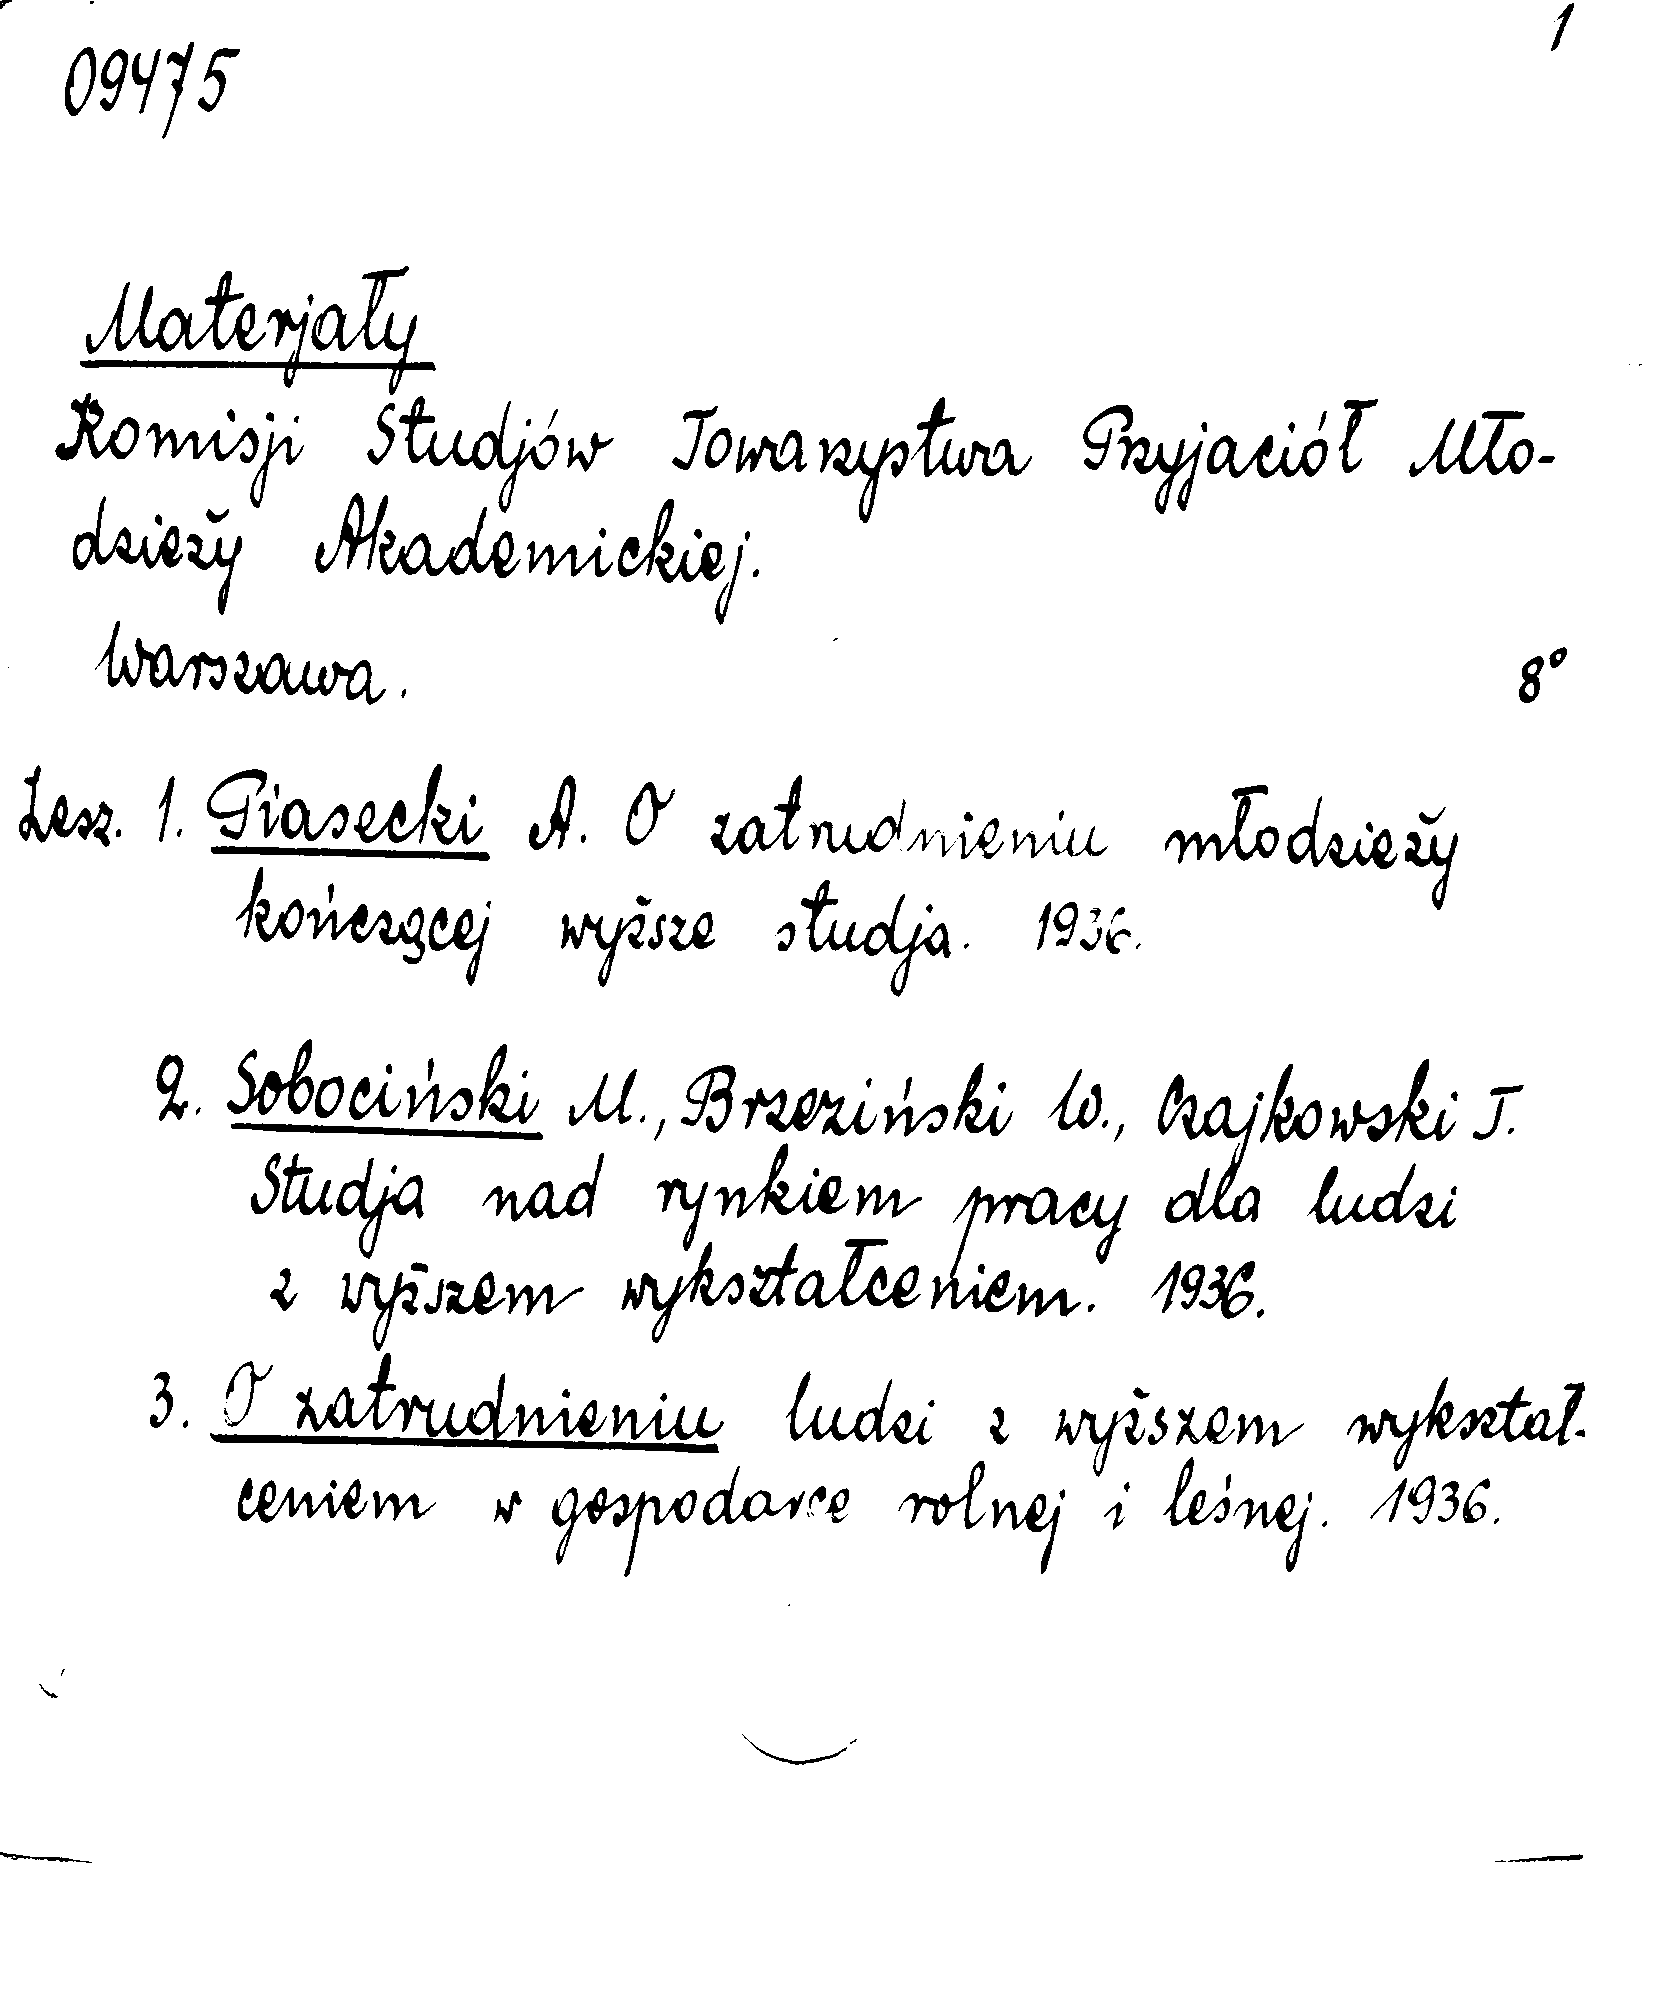 1
09475
Materjały
Komisji Studjów Towarzystwa Przyjaciół Mło-
dzieży Akademickiej.
Warszawa.
8°
Zesz. 1. Piasecki A. O zatrudnieniu młodzieży
kończącej wyższe studja. 1936.
2. Sobociński M., Brzeziński W., Czajkowski T.
Studja nad rynkiem pracy dla ludzi
z wyższem wykształceniem. 1936.
3. O zatrudnieniu ludzi z wyższem wykształ-
ceniem w gospodarce rolnej i leśnej. 1936.